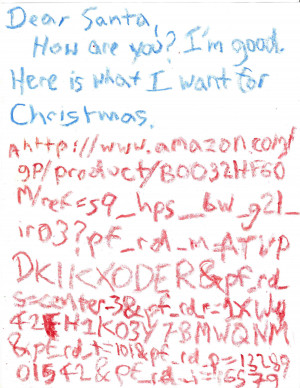 Dear Santa,
How are you? I'm good.
Here is what I want for
Christmas.
A http://www.amazon.com/
gp/product/B0032HF60
M/ref=s9_hps_bw_g21_
ir03?pf_rd_m=ATVP
DKIKX0DER&pf_rd_
s=center-3&pf_rd_r=1XWY
42FH1K03Y7BMWQNM
&pf_rd_t=101&pf_rd_p=12289
01542&pf_rd_i=165